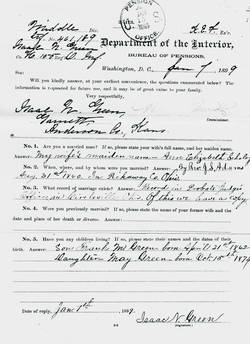 Middle Div.
Ctf. No. 461,189
Isaac N. Green
Co. K. 182" O. Inf
PENSION
OFFICE
Department of the Interior,
BUREAU OF PENSIONS,
Washington, D. C., Jan 7, 1899
Will you kindly answer, at your earliest convenience, the questions enumerated below? The
information is requested for future use, and it may be of great value to your family.
Very respectfully,
Isaac N. Green
Garnett
Anderson Co, Kans
No. 1. Are you a married man? If so, please state your wife's full name, and her maiden name.
Answer: My wife's maiden name - Ann Elizabeth
No. 2. When, where, and by whom were you married? Answer: by Rev. J. S. Adams
Aug 21st 1860 in Pickaway Co, Ohio
No. 3. What record of marriage exists? Answer: Record in Probate Judge's
office in Circleville O. Of this we have a copy
No. 4. Were you previously married? If so, please state the name of your former wife and the
date and place of her death or divorce. Answer:
No. 5. Have you any children living? If so, please state their names and the dates of their
birth. Answer: Son Frank M Green born April 21st 1862
Daughter May Green born Oct 15th 1874
Date of reply, Jan 18th, 1899.
Isaac N. Green
(Signature.)